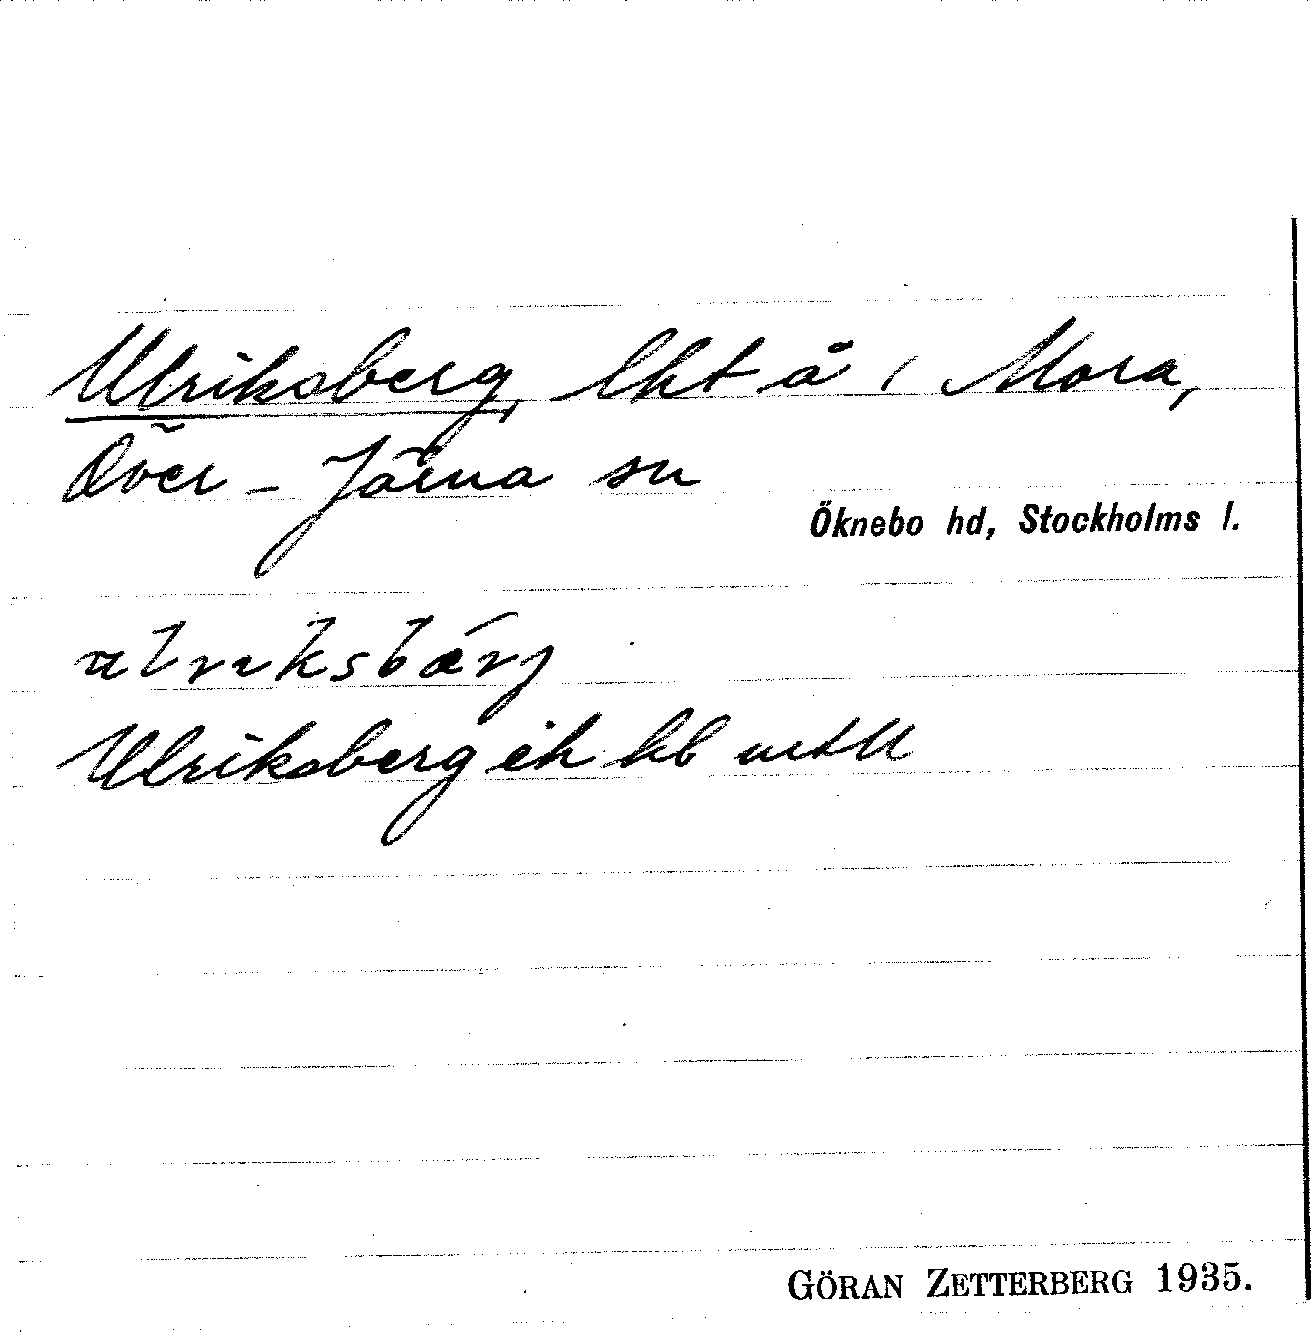 Ulriksberg, lht å 1 Mora,
Över-Järna sn
Öknebo hd, Stockholms l.
ulriksbärj
Ulriksberg ek hb
GÖRAN ZETTERBERG 1935.